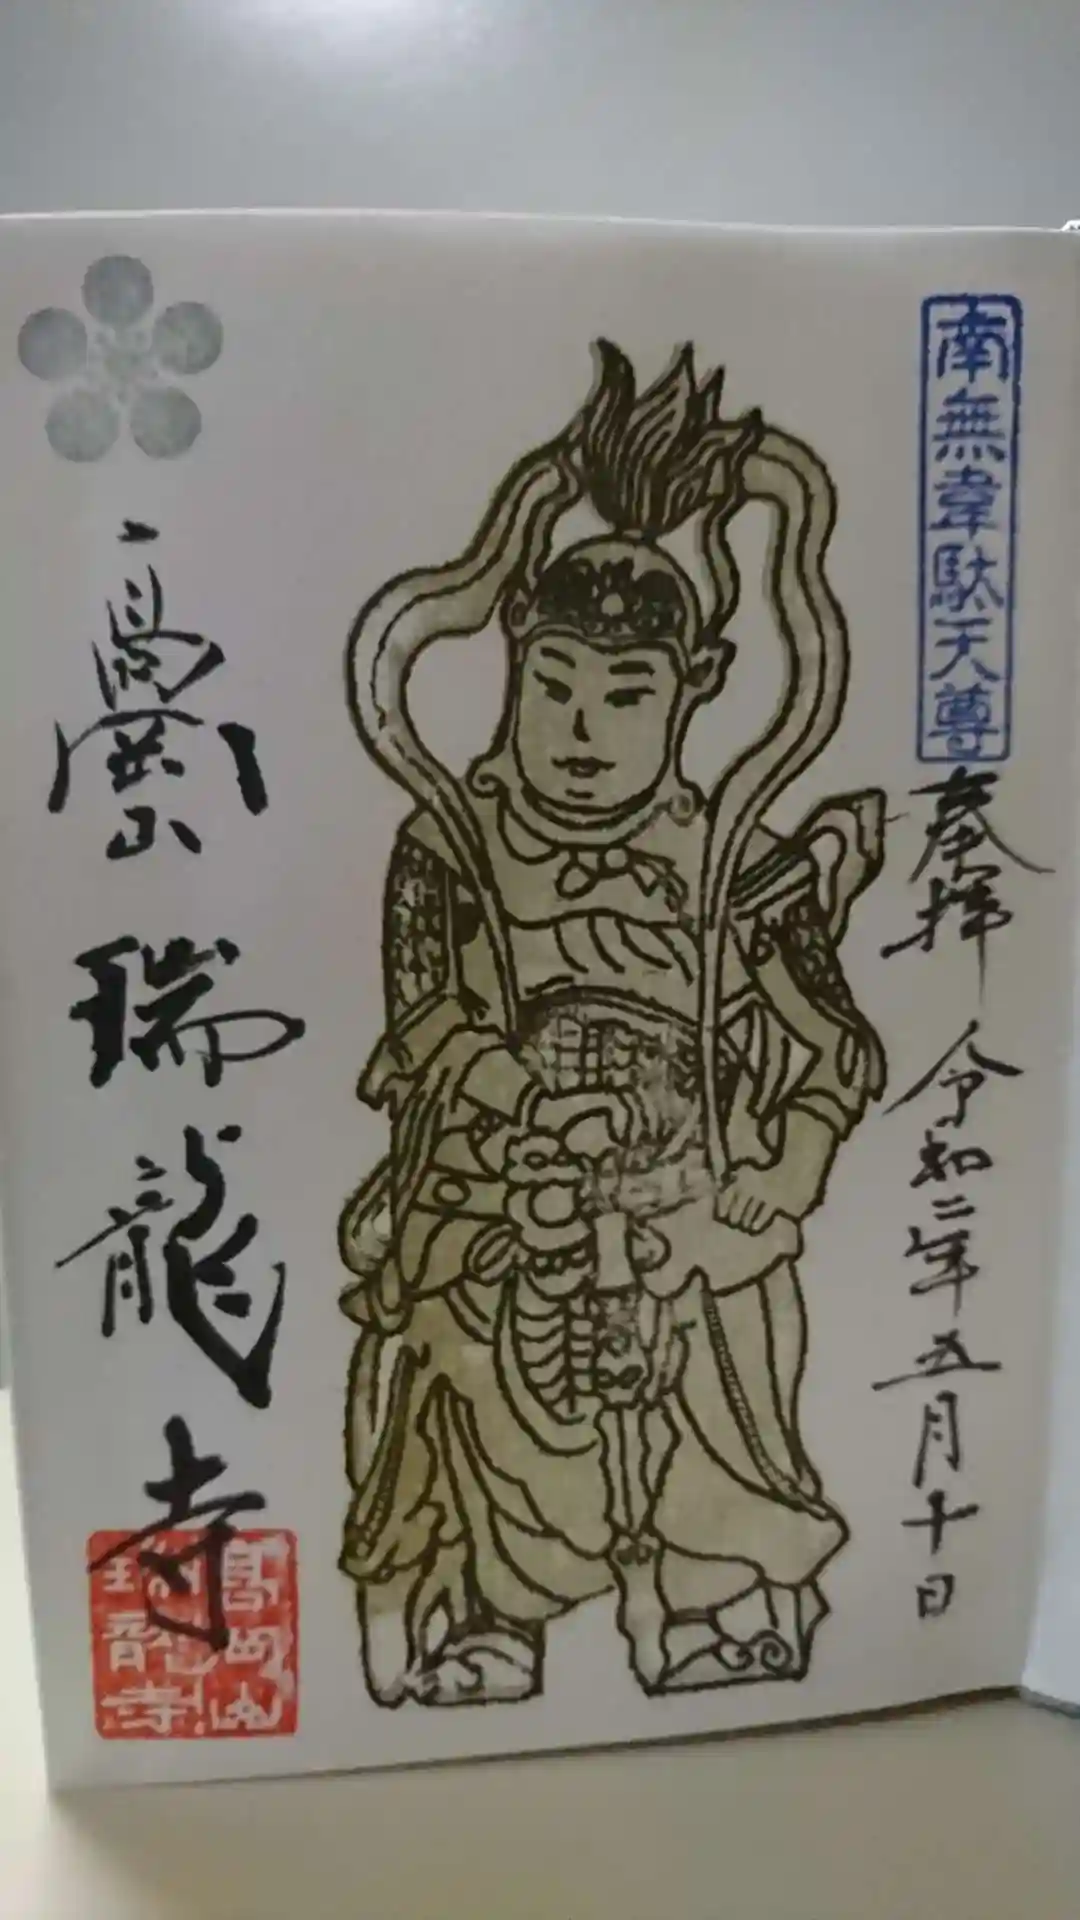 南無韋駄天尊
奉拝 令和二年五月十日
高岡山瑞龍寺
高岡山
瑞龍寺